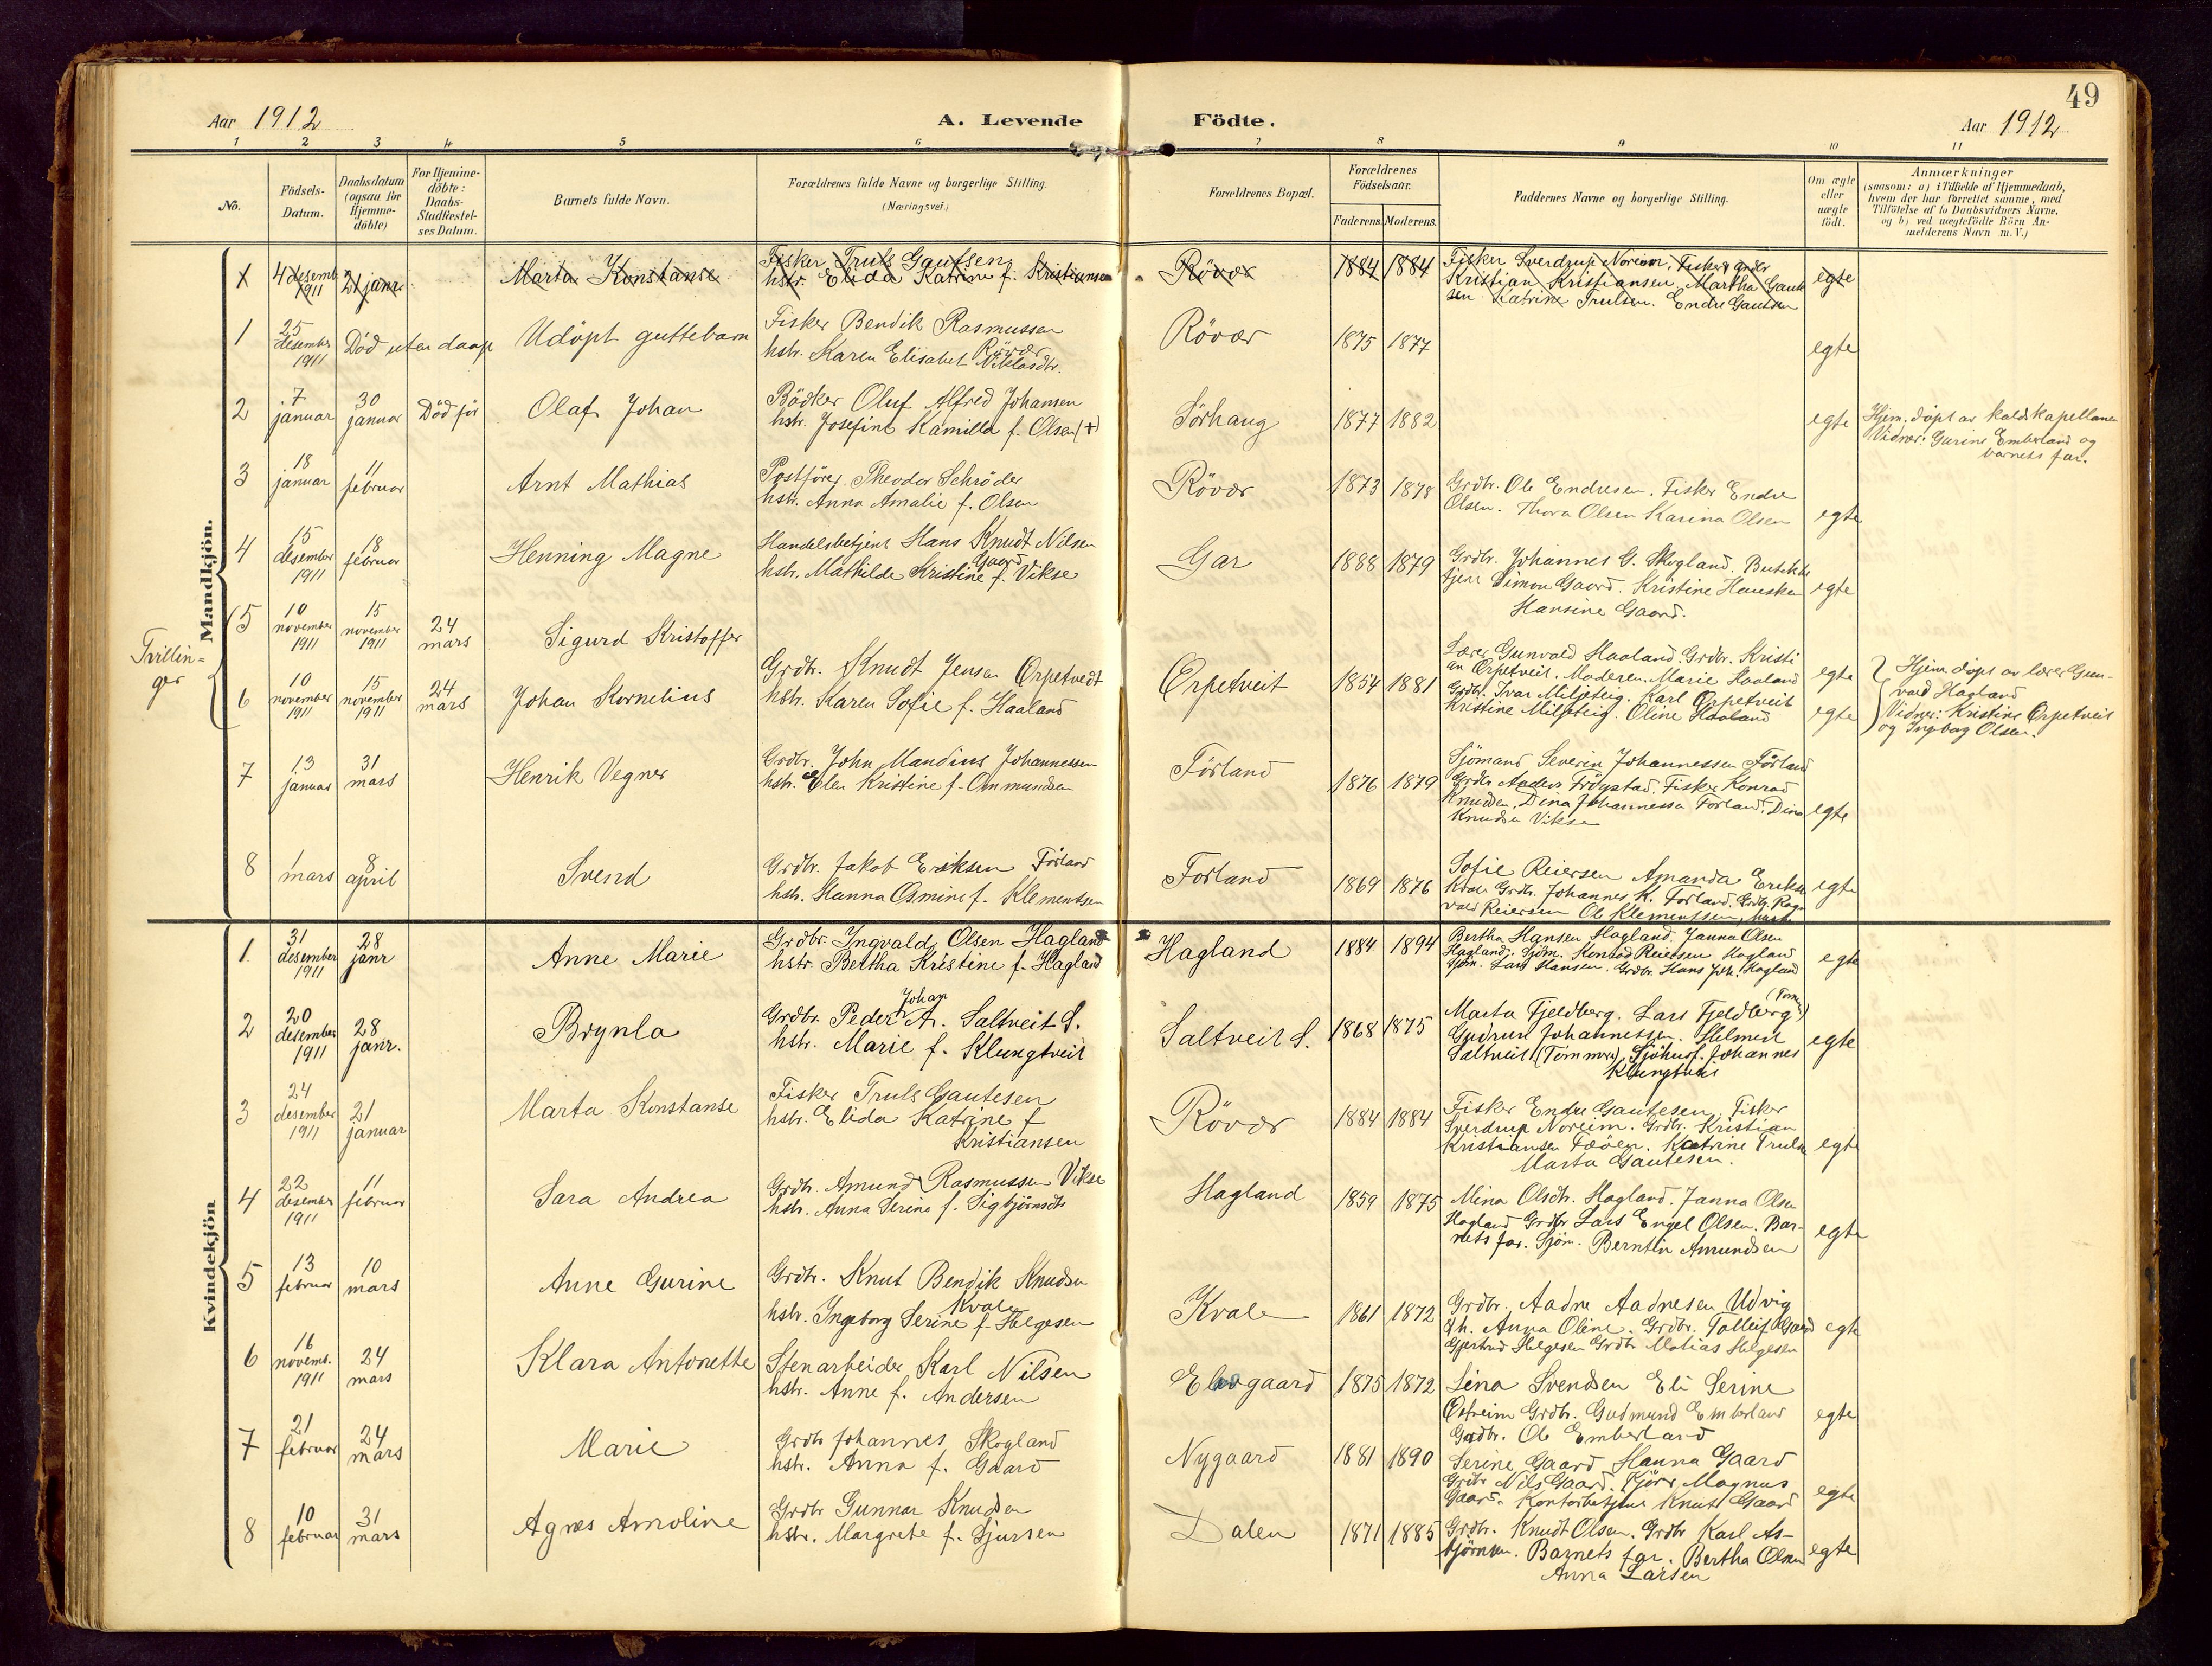 49
Aar 1912 A. Levende Födte. Aar 1912
1 2 3 4 5 6 7 8 9 10 11
No.
Födsels-
Datum.
Daabsdatum
(ogsaa for
Hjemme-
döbte)
For Hjemme-
döbte:
Daabs-
Stadfæstel-
ses Datum.
Barnets fulde Navn.
Forældrenes fulde Navne og borgerlige Stilling.
(Næringsvei.)
Forældrenes Bopæl.
Forældrenes
Födselsaar.
Faderens. Moderens.
Faddernes Navne og borgerlige Stilling.
Om ægte
eller
uægte
födt.
Anmærkninger
(saasom: a) i Tilfælde af Hjemmedaab,
hvem der har forrettet samme, med
Tilföielse af to Daabsvidners Navne.
og b) ved uægtefödte Börn An-
melderens Navn m. V.)
Mandkjön.
1
4 desemb.
1911
21 janr.
Marta Konstanse
Fisker Truls Gautesen
hstr. Elida Katrine f. Kristiansen
Rövær
1884 1884
Fisker Sverdrup Noreim, Fisker
Kristian Kristiansen, Martha Gaut
sen Katrine Trulsen. Endre Gautesen
egte
1
25
desember
1911
Död uten daap
Udöpt guttebarn
Fisker Bendik Rasmussen
Rövær
hstr. Karen Elisabet Niklasdtr.
Rövær
1875 1877
egte
2
7
januar
30
januar
Död för
Olaf Johan
Bödker Oluf Alfred Johansen
hstr. Josefine Kamilla f. Olsen (+)
Sörhaug
1877 1882
egte
Hjem. döpt av kaldskapellanen
Vidner: Gurine Emberland og
barnets far.
3
18
januar
11
februar
Arnt Mathias
Postförer Theodor Schröder
hstr. Anna Amalie f. Olsen
Rövær
1873 1878
Grdbr. Ole Endresen. Fisker Endre
Olsen. Thora Olsen Karina Olsen
egte
4
15
desember
1911
18
februar
Henning Magne
Handelsbetjent Hans Knudt Nilsen
Gaard
hstr. Mathilde Kristine f. Vikse
Gar
1888 1879
Grdbr. Johannes G. Skogland. Butikbe
tjent Simon Gaard. Kristine Hausken
Hansine Gaard.
egte
Tvillin-
ger
5
10
november
1911
15
november
1911
24
mars
Sigurd Kristoffer
6
10
november
1911
15
november
1911
24
mars
Johan Kornelius
Grdbr. Knudt Jensen Orpetvedt
hstr. Karen Sofie f. Haaland
Orpetveit
1854 1881
Lærer Gunvald Haaland. Grdbr. Kristi
an Orpetveit. Moderen. Marie Haaland
Grdbr. Ivar Miljeteig. Karl Orpetveit
Kristine Miljeteig. Oline Haaland
egte
egte
Hjem. döpt av lærer Gun-
vald Hagland
Vidner: Kristine Orpetveit
og Ingborg Olsen.
7
13
januar
31
mars
Henrik Vegner
Grdbr. John Mandius Johannessen
hstr. Elen Kristine f. Ommundsen
Förland
1876 1879
Sjömand Severin Johannessen Förland
Grdbr. Anders Fröystad. Fisker Konrad
Knudsen, Dina Johannessen Forland. Dina
Knudsen Vikse
egte
8
1
mars
8
april
Svend
Grdbr. Jakob Eriksen Förland
hstr. Hanna Osmine f. Klementsen
Forland
1869 1876
Sofie Reiersen Amanda Eriks
Kvale Grdbr. Johannes K. Forland. Grdbr. Rag-
vald Reiersen Ole Klementssen,
egte
Kvindekjön
1.
31
desember
1911
28
janr
Anne Marie
Grdbr. Ingvald Olsen Hagland
hstr. Bertha Kristine f. Hagland
Hagland
1884 1894
Bertha Hansen Hagland. Janna Olsen
Hagland. Sjöm. Konrad Reiersen Hagland
Sjöm. Lars Hansen. Grdbr. Hans Joh. Hagland
egte
2
20
desember
1911
28
janr.
Brynla
Johan
Grdbr. Peder A. Saltveit S.
hstr. Marie f. Klungtveit
Saltveit S.
1868 1875
Marta Fjeldberg. Lars Fjeldberg
Gudrun Johannessen. Helmed
Saltveit (Tömmerm), Sjöhusf. Johannes
Klungtveit
egte
3
24
desember
1911
21
januar
Marta Konstanse
Fisker Truls Gautesen
hstr. Elida Katrine f
Kristiansen
Rövær
1884 1884
Fisker Endre Gautesen, Fisker
Sverdrup Noreim. Grdbr. Kristian
Kristiansen Fæöen. Katrine Truls
Marta Gautesen.
egte
4
22
desember
1911
11
februar
Sara Andrea
Grdbr. Amund Rasmussen Vikse
hstr. Anna Serine f. Sigbjörnsdtr
Hagland
1859 1875
Mina Olsdtr. Hagland. Janna Olsen
Hagland Grdbr Lars Engel Olsen. Bar-
nets far. Sjöm. Berntin Amundsen
egte
5
13
februar
10
mars
Anne Gurine
Grdbr. Knut Bendik Knudsen
Kvale
hstr. Ingeborg Serine f. Helgesen
Kvale
1861 1872
Grdbr. Aadne Aadnesen Udvig
h. Anna Oline. Grdbr. Tolleif Gaard
Gjertrud Helgesen Grdbr Matias Helgesen
egte
6
16
novemb.
1911
24
mars
Klara Antonette
Stenarbeider Karl Nilsen
hstr. Anne f. Andersen
1875 1872
Lina Svendsen Eli Serine
Osheim Grdbr. Gudmund Emberland
Grdbr. Ole Emberland
egte
7
21
februar
24
mars
Marie
Grdbr Johannes Skogland
hstr. Anna f. Gaard
Nygaard
1881 1890
Serine Gaard Hanna Gaard
Grdbr Nils Gaard. Kjörer Magnus
Gaard. Kontorbetjent Knutt Gaard
egte
8
10
februar
31
mars
Agnes Amoline
Grdbr Gunnar Knudsen
hstr. Margrete f. Sjursen
Dalen
1871 1885
Grdbr. Knudt Olsen. Grdbr Karl As-
björnsen. Barnets far. Bertha Olsen
Anna Larsen
egte